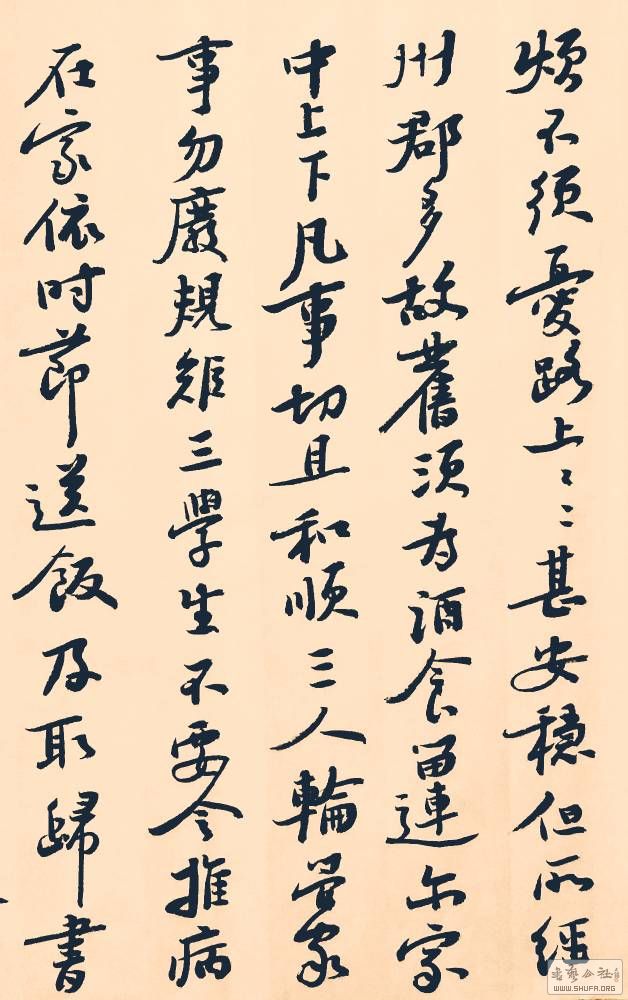 煩不須憂路上〻〻甚安穩但所經
州郡多故舊須為酒食留連尓家
中上下凡事切且和順三人輪管家
事勿廢規矩三學生不要令推病
在家依時節送飯及取歸書
書藝公社
WWW.SHUFA.ORG